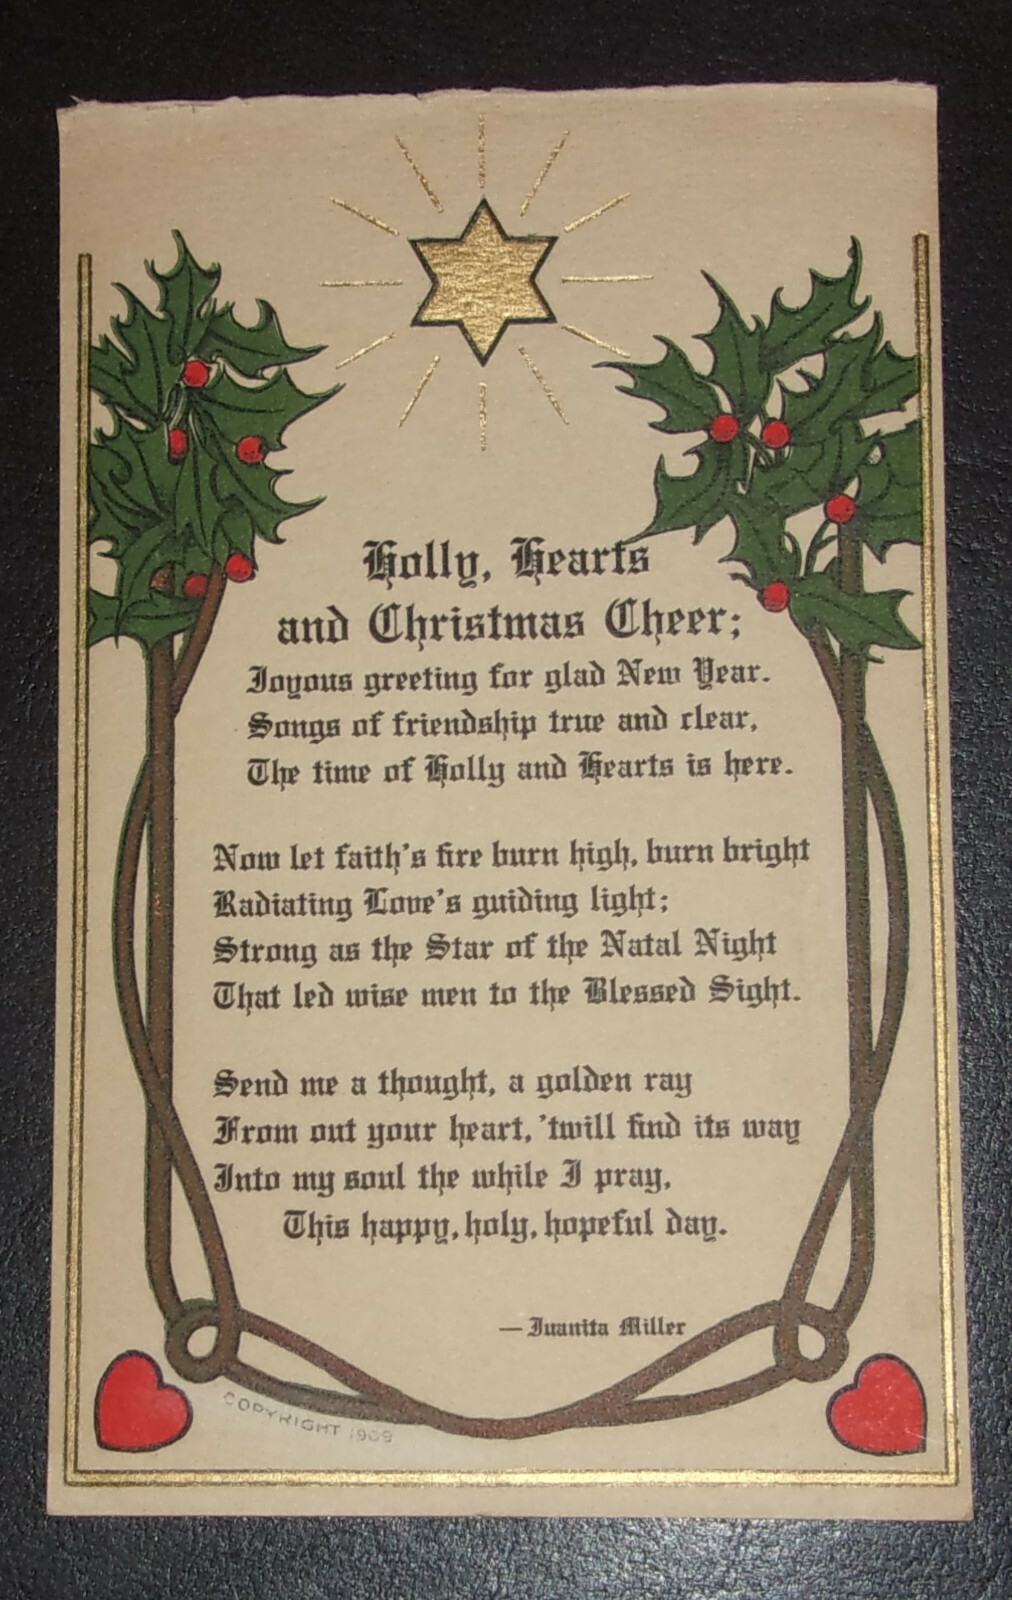 Holly, Hearts
and Christmas Cheer;
Joyous greeting for glad New Year.
Songs of friendship true and clear,
The time of Holly and Hearts is here.
Now let faith's fire burn high, burn bright
Radiating Love's guiding light;
Strong as the Star of the Natal Night
That led wise men to the Blessed Sight.
Send me a thought, a golden ray
From out your heart, 'twill find its way
Into my soul the while I pray,
This happy, holy, hopeful day.
—Juanita Miller
COPYRIGHT 1909